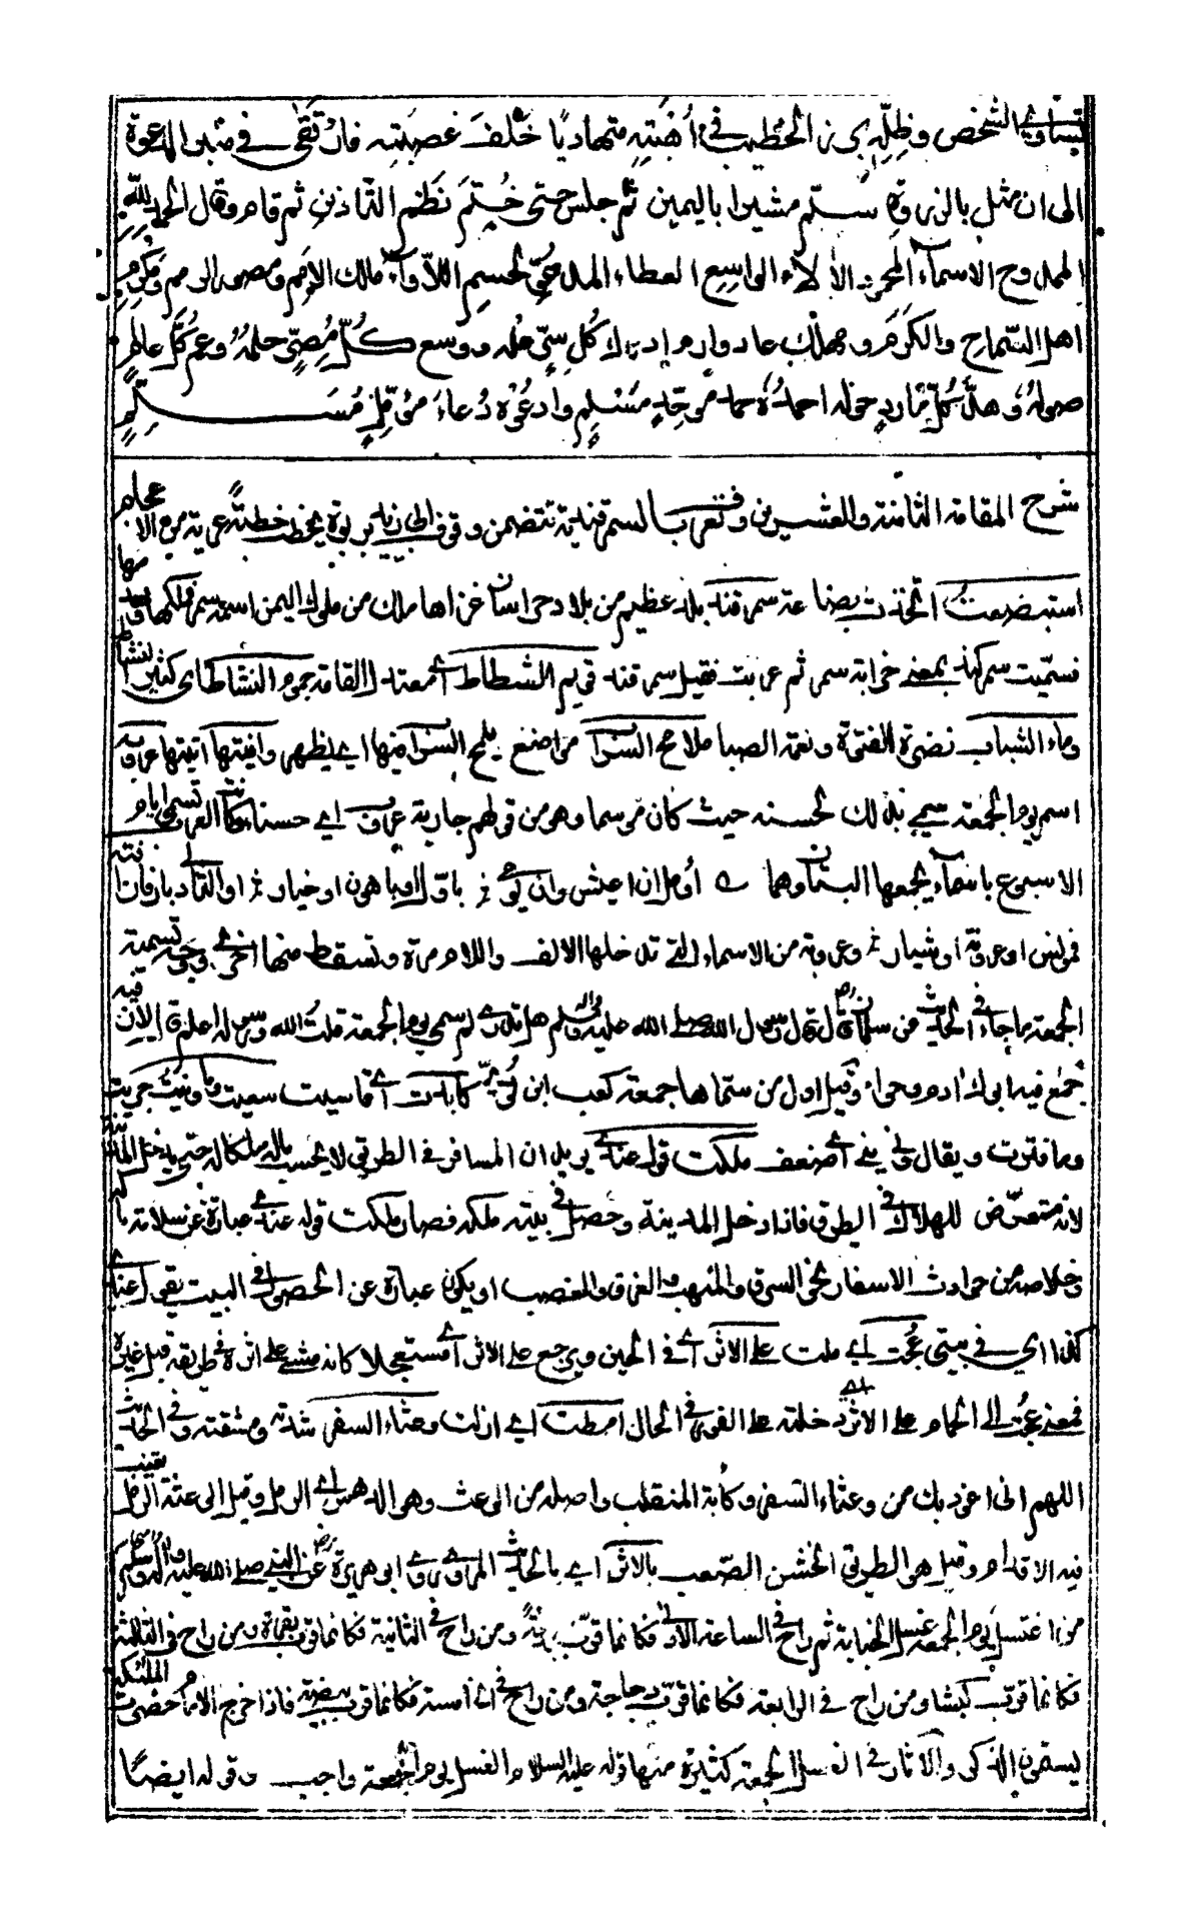 تساوى الشخص وظله برز الخطيب في أهبته متهاديا خلف عصبته فارتقى في منبر الدعوة
الى ان مثل بالذروة سلم مشيرا باليمين ثم جلس حتى ختم نظم التاذين ثم قام وقال الحمد لله
الممدوح الاسماء المحمود الآلاء الواسع العطاء المدعو لحسم اللأواء مالك الامم ومصور الرمم ومكرم
اهل السماح والكرم ومهلك عاد وارم ادرك كل سر علمه ووسع كل مصر حلمه وعم كل عالم
طوله وهد كل مارد حوله احمده حمد موحد مسلم وادعوه دعاء مؤمل مسلم
شرح المقامة الثامنة والعشرين وتعرف بالسمرقندية تتضمن وقوف ابي زيد يخطب خطبة عرية من الاعجام
استبضعت اتخذت بضاعة سمرقند بلد عظيم من بلاد خراسان غزاها ملك من ملوك اليمن اسمه سمر فملكها وهدمها
فسميت سمركند بمعنى خرابة سمر ثم عربت فقيل سمرقند قويم الشطاط اى معتدل القامة جموم النشاط اى كثير النشاط
وماء الشباب نضرة الفتوة ونعمة الصبا ملامح السراب مواضع يلمح السراب فيها اي يظهر وافيتها اتيتها عروبة
اسم يوم الجمعة سمي بذلك لحسنه حيث كان موسما وهو من قولهم جارية عروب اي حسناء كانت العرب تسمي ايام
الاسبوع باسماء يجمعها البيتان وهما اؤمل ان اعيش وان يومي باول او باهون او جبار او التالي دبار فان افته
فمونس او عروبة او شيار وعروبة من الاسماء التي تدخلها الالف واللام مرة وتسقط منها اخرى وجه تسمية
الجمعة ما جاء في الحديث عن سلمان قال قال رسول الله صلى الله عليه وآله وسلم هل تدري لم سمي يوم الجمعة قلت الله ورسوله اعلم قال لان فيه
جمع فيه ابوك آدم وحواء وقيل اول من سماها جمعة كعب ابن لوي كابدت اى قاسيت سعيت وما ونيت جريت
وما فترت ويقال ونى يني اى ضعف ملكت قول عندي يريد ان المسافر في الطريق لا يحسب ماله ملكا له حتى يدخل المدينة
لانه متعرض للهلاك في الطريق فاذا دخل المدينة وحصل في بيته ملكه فصار ملكت قول عندي عبارة عن سلامة ماله
وخلاصه من حوادث الاسفار نحو السرق والنهب والغرق والغصب او يكون عبارة عن الحصول في البيت يقول عندي
كذا اي في بيتي عجت اي ملت على الاثر اى في الحين ويرجع على الاثر اى مستعجلا كانه مشى على اثره في طريقه قبل غيره
فمعنى عجت الى الحمام على الاثر اي دخلته على الفور في الحال امطت اي ازلت وعثاء السفر شدته ومشقته وفي الحديث
اللهم اني اعوذ بك من وعثاء السفر وكآبة المنقلب واصله من الوعث وهو الدهس اى الرمل وقيل الوعث الرمل تغيب
فيه الاقدام وقيل هو الطريق الخشن الصعب بالاثر اي بالحديث المروي روى ابو هريرة عن النبي صلى الله عليه وآله وسلم
من اغتسل يوم الجمعة غسل الجنابة ثم راح في الساعة الاولى فكانما قرب بدنة ومن راح في الثانية فكانما قرب بقرة ومن راح في الثالثة
فكانما قرب كبشا ومن راح في الرابعة فكانما قرب دجاجة ومن راح في الخامسة فكانما قرب بيضة فاذا خرج الامام حضرت الملئكة
يستمعون الذكر والآثار في الغسل الجمعة كثيرة منها قوله عليه السلام الغسل يوم الجمعة واجب وقوله ايضا